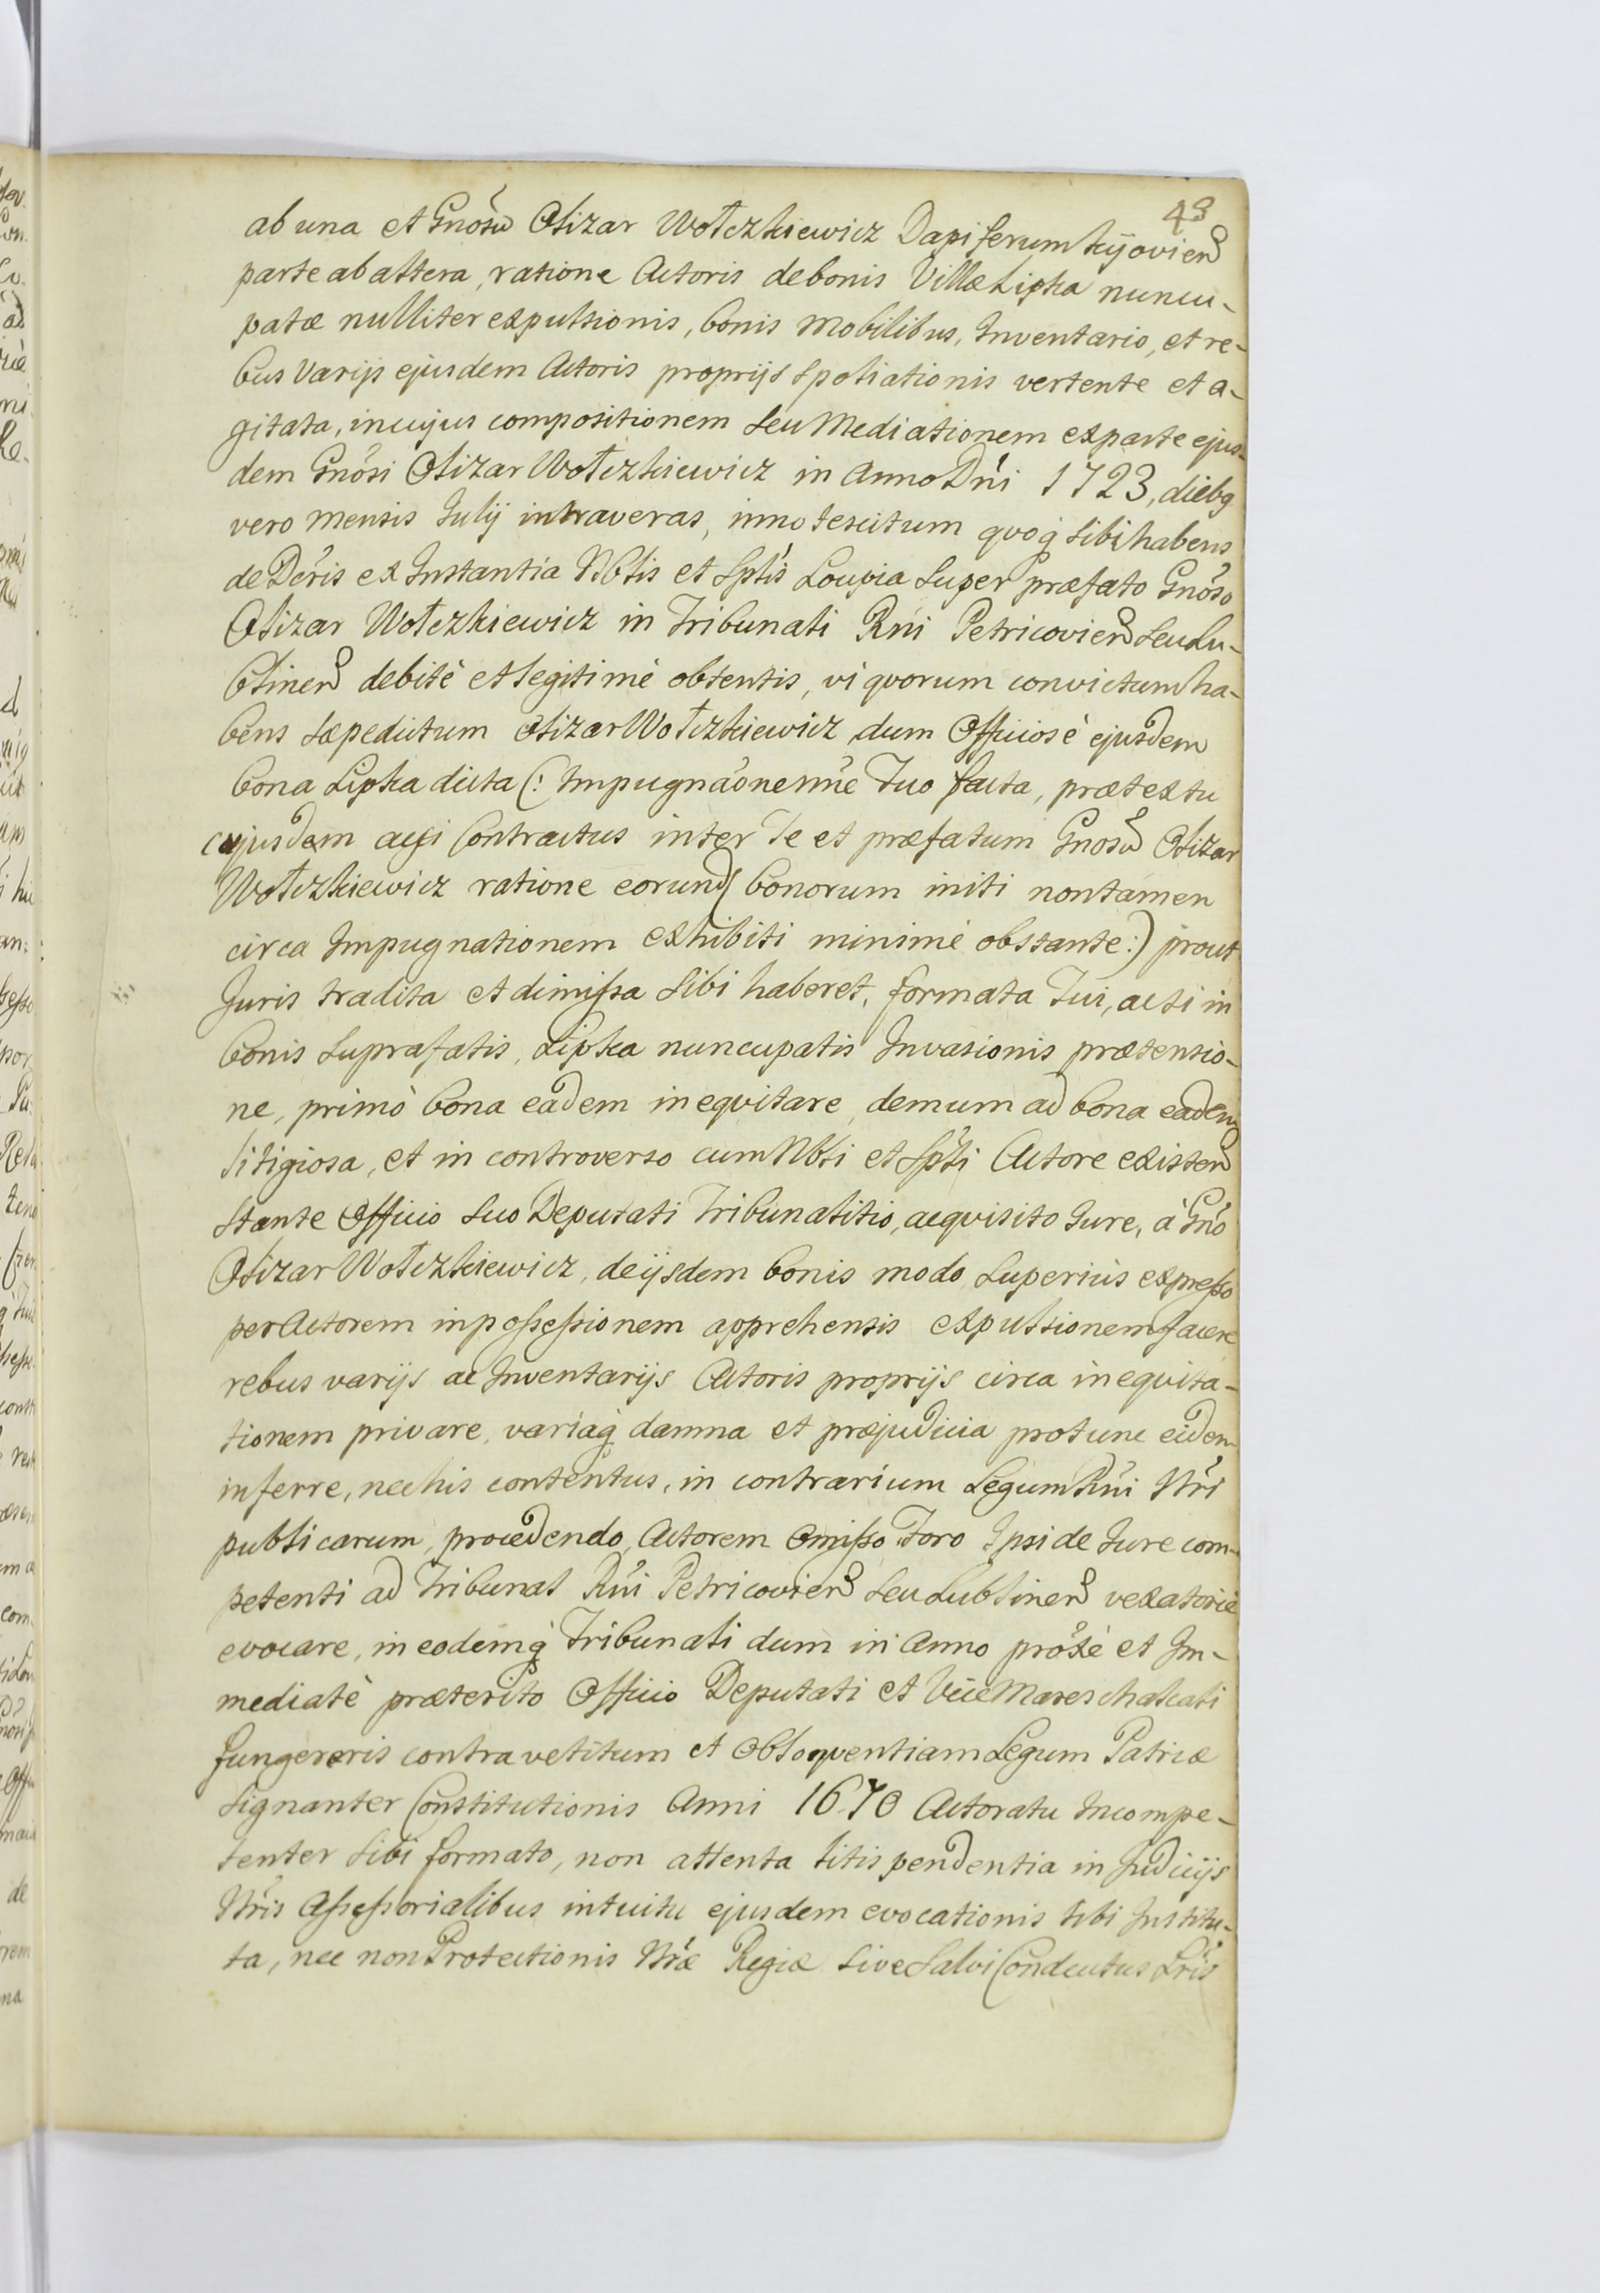 43
ab una et Gnosũ Olizar Wołczkiewicz Dapiferum Kijovien
parte ab altera, ratione Actoris de bonis Villæ Lipka nuncu-
patæ nulliter expulsionis, bonis mobilibus, Inventario, et re-
bus varijs ejusdem Actoris proprijs spoliationis vertente et a-
gitata, in cujus compositionem seu Mediationem ex parte ejus-
dem Gnõsi Olizar Wołczkiewicz in Anno Dni 1723, diebq
vero mensis Julij intraveras, innotescitum qvoq sibi habens
de Dẽris ex Instantia Nblis et Sptis Loupia super præfato Gnõso
Olizar Wołczkiewicz in Tribunali Rni Petricovien seu Lu-
blinen debitè et legitimè obtentis, vi qvorum convictum ha-
bens sæpedictum Olizar Wołczkiewicz dum Officiosè ejusdem
bona Lipka dicta (: Impugnaõne nne Tuo facta, prætextu
cujusdam acsi Contractus inter Te et præfatum Gnosũ Olizar
Wołczkiewicz ratione eorund bonorum initi non tamen
circa Impugnationem exhibiti minimè obstante :) prout
Juris tradita et dimissa sibi haberet, formata Tui, acsi in
bonis suprafatis, Lipka nuncupatis Invasionis prætensio-
ne, primò bona eadem inequitare, demum ad bona eadem
litigiosa, et in controverso cum Nbli et Spti Actore existen
stante Officio suo Deputati Tribunalitio, acqvisito Jure, à Gno
Olizar Wołczkiewicz, de ijsdem bonis modo superiùs expresso
per Actorem in possessionem apprehensis expulsionem facere
rebus varijs ac Inventarijs Actoris proprijs circa ineqvita-
tionem privare, variaq damna et præjudicia pro tunc eidem
inferre, nec his contentus, in contrarium Legum Rni Nri
publicarum, procedendo, Actorem omisso Foro Ipsi de Jure com-
petenti ad Tribunal Rni Petricovien seu Lublinen vexatoriè
evocare, in eodemq Tribunali dum in Anno proxè et Im-
mediatè præterito Officio Deputati et Vice Mareschalcati
fungereris contra vetitum et Obloqventiam Legum Patriæ
signanter Constitutionis Anni 1670 Actoratu Incompe-
tenter sibi formato, non attenta litis pendentia in Judicijs
Nris Assessorialibus intuitu ejusdem evocationis tibi Institu-
ta, nec non Protectionis Nræ Regiæ sive Salvi Conductus Lris